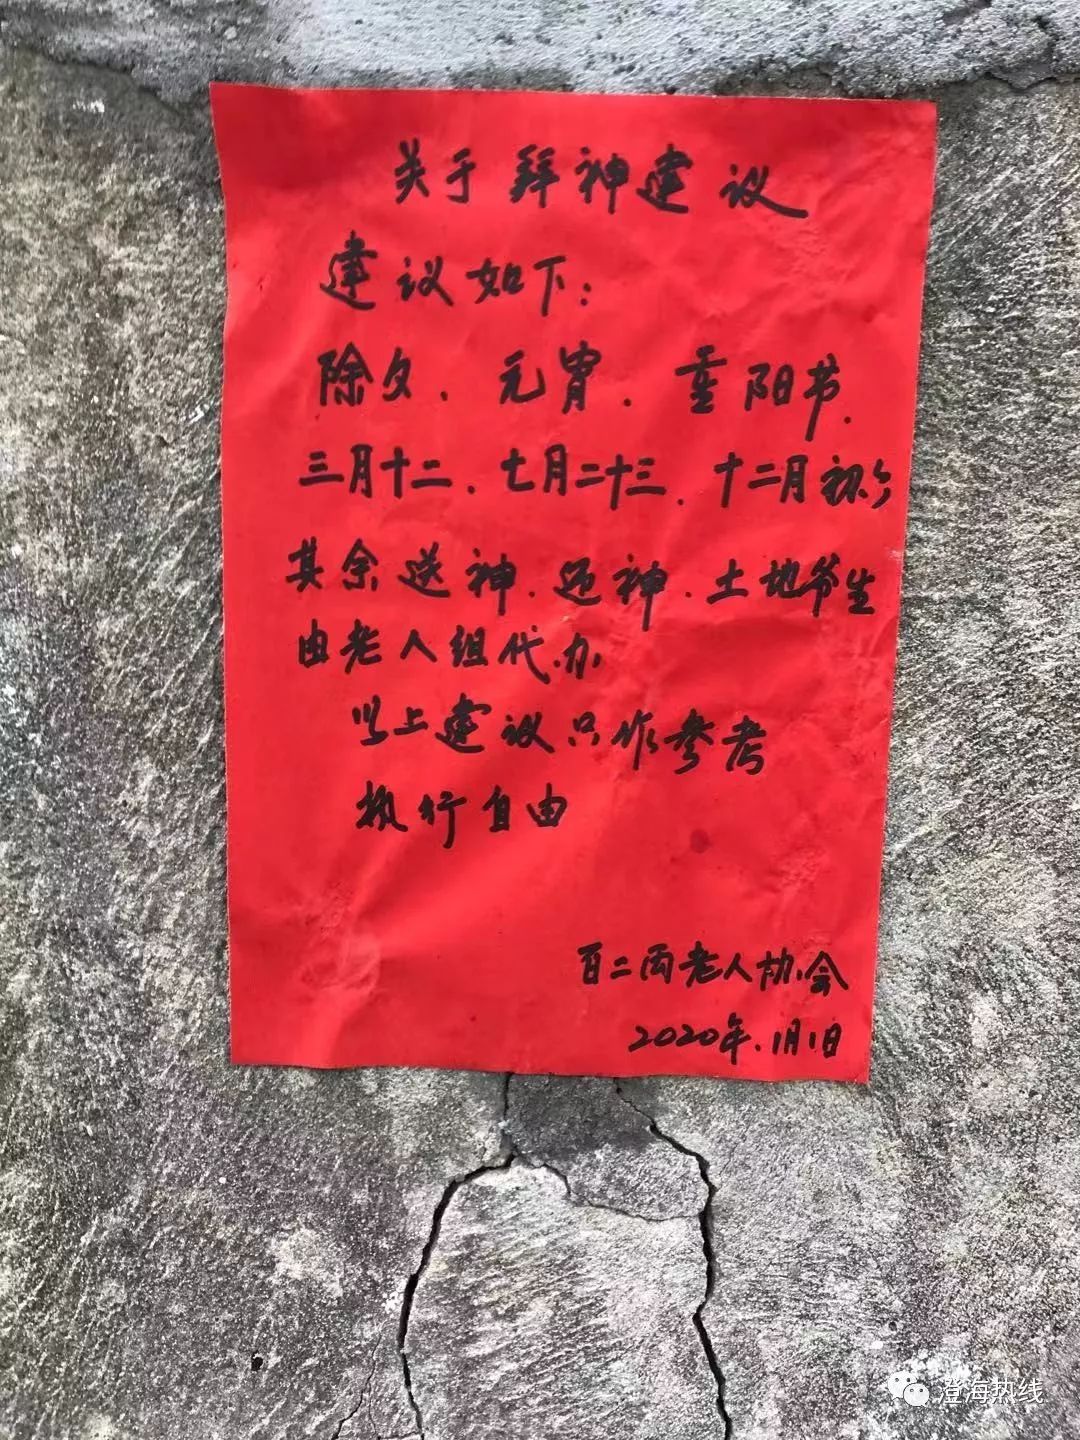 关于拜神建议
建议如下：
除夕、元宵、重阳节、
三月十二、七月二十三、十二月初六
其余送神、迎神、土地爷生
由老人组代办
以上建议只作参考
执行自由
百二两老人协会
2020年、1月1日
澄海热线